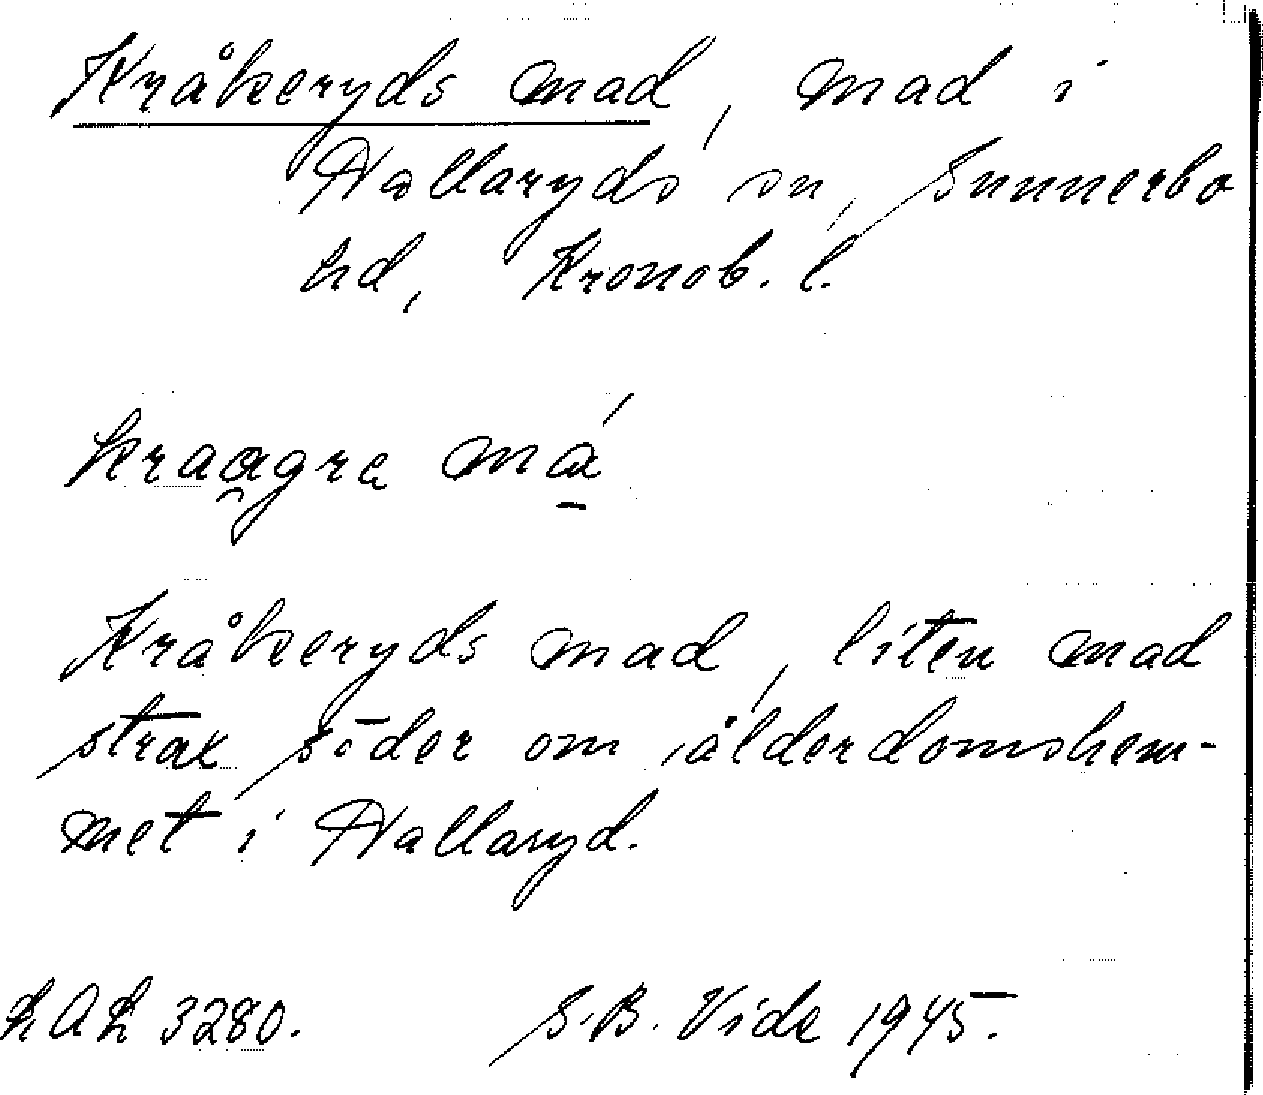 Kråkeryds mad, mad i
Hallaryds sn, Sunnerbo
hd, Kronob. l.
kraagre má
Kråkeryds mad, liten mad
strax söder om ålderdomshem-
met i Hallaryd.
LAL 3280. S.B. Vide 1945.